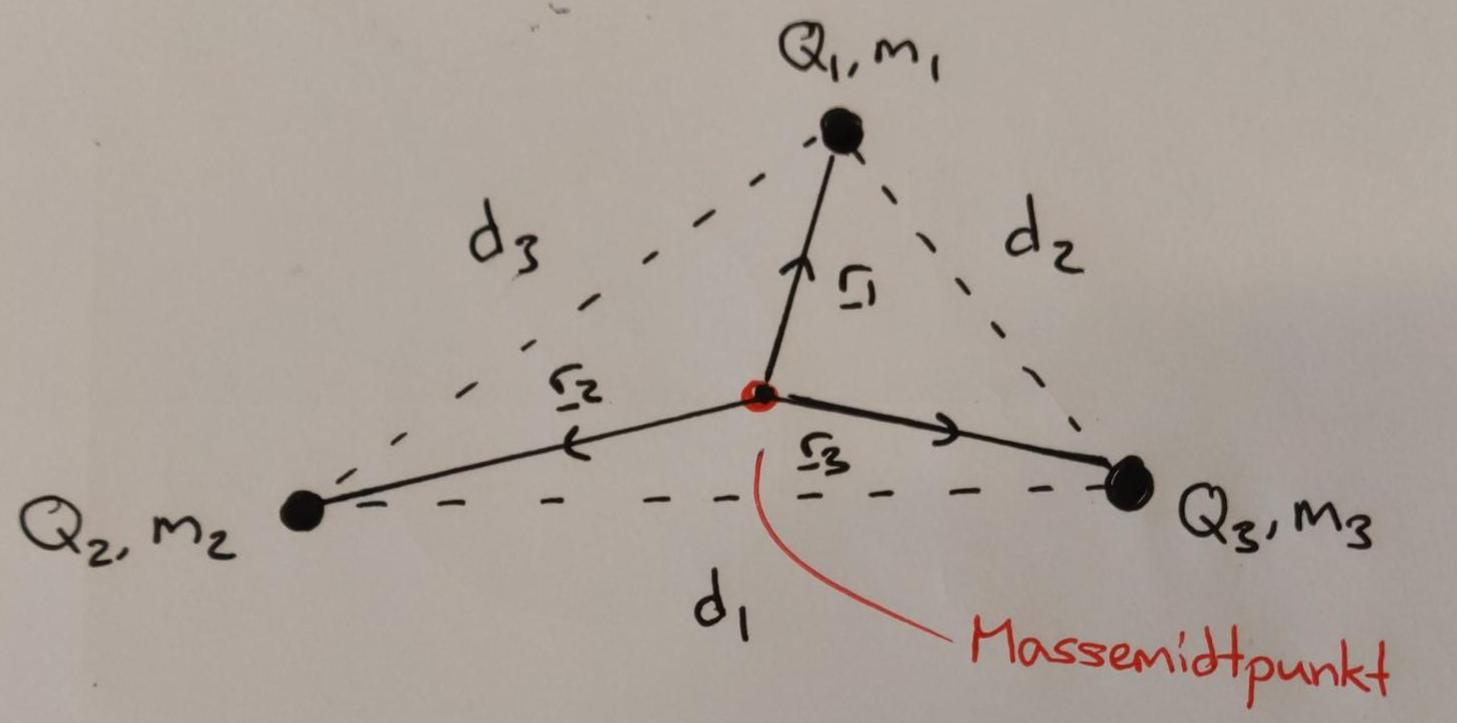 Q₁, m₁
d₃
d₂
r₁
r₂
r₃
Q₂, m₂
Q₃, m₃
d₁
Massemidtpunkt